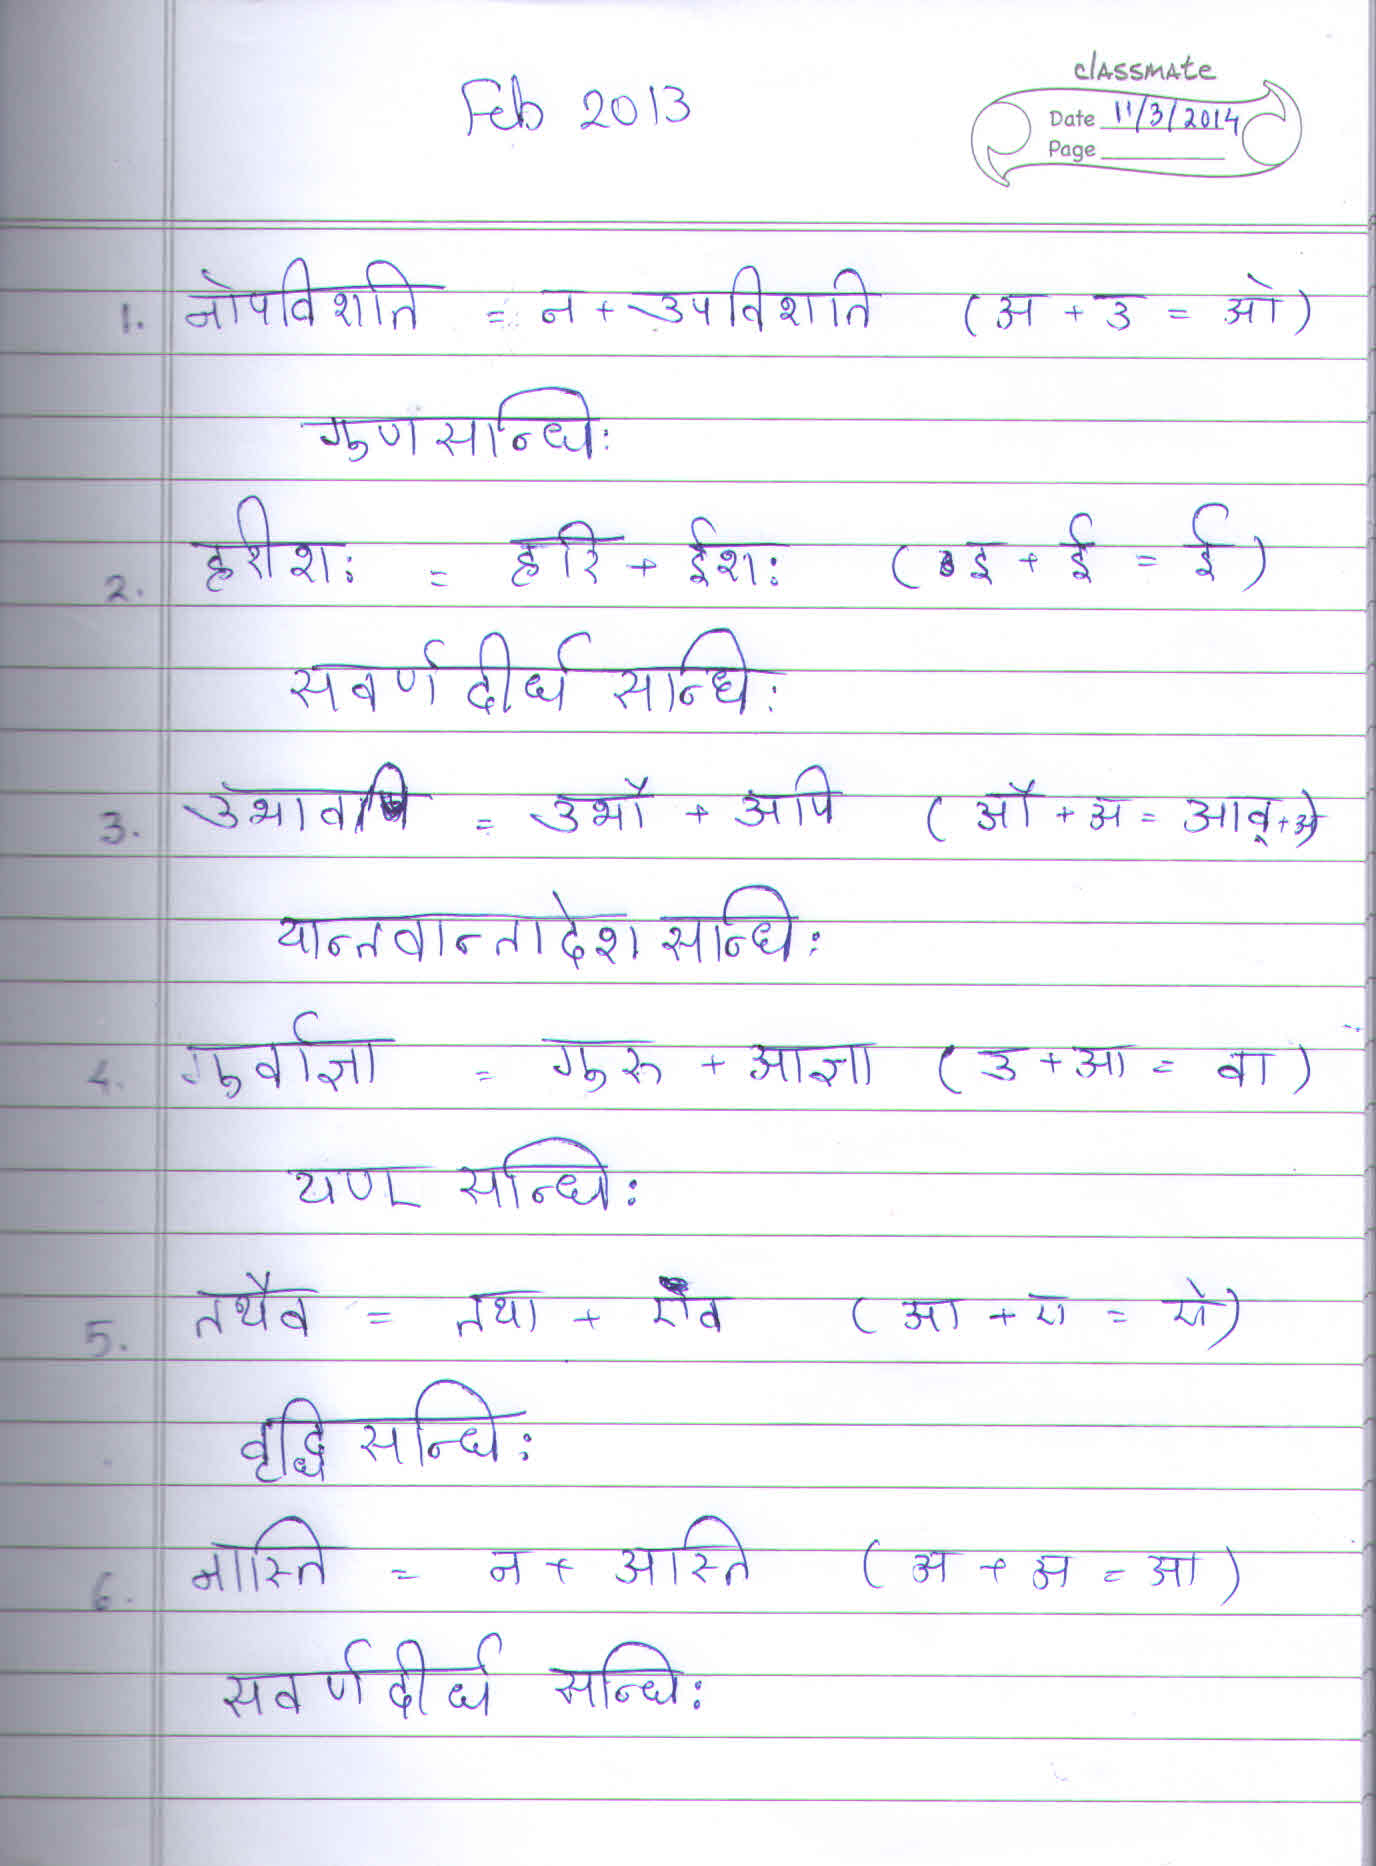 classmate
Feb 2013
Date 11/3/2014
Page
1. नोपविशति = न + उपविशति (अ + उ = ओ)
गुणसन्धिः
2. हरीशः = हरि + ईशः (इ + ई = ई)
सवर्णदीर्घ सन्धिः
3. उभावपि = उभौ + अपि (औ + अ = आव् + अ)
यान्तवान्तादेश सन्धिः
4. गुर्वाज्ञा = गुरु + आज्ञा (उ + आ = वा)
यण् सन्धिः
5. तथैव = तथा + एव (आ + ए = ऐ)
वृद्धि सन्धिः
6. नास्ति = न + अस्ति (अ + अ = आ)
सवर्णदीर्घ सन्धिः